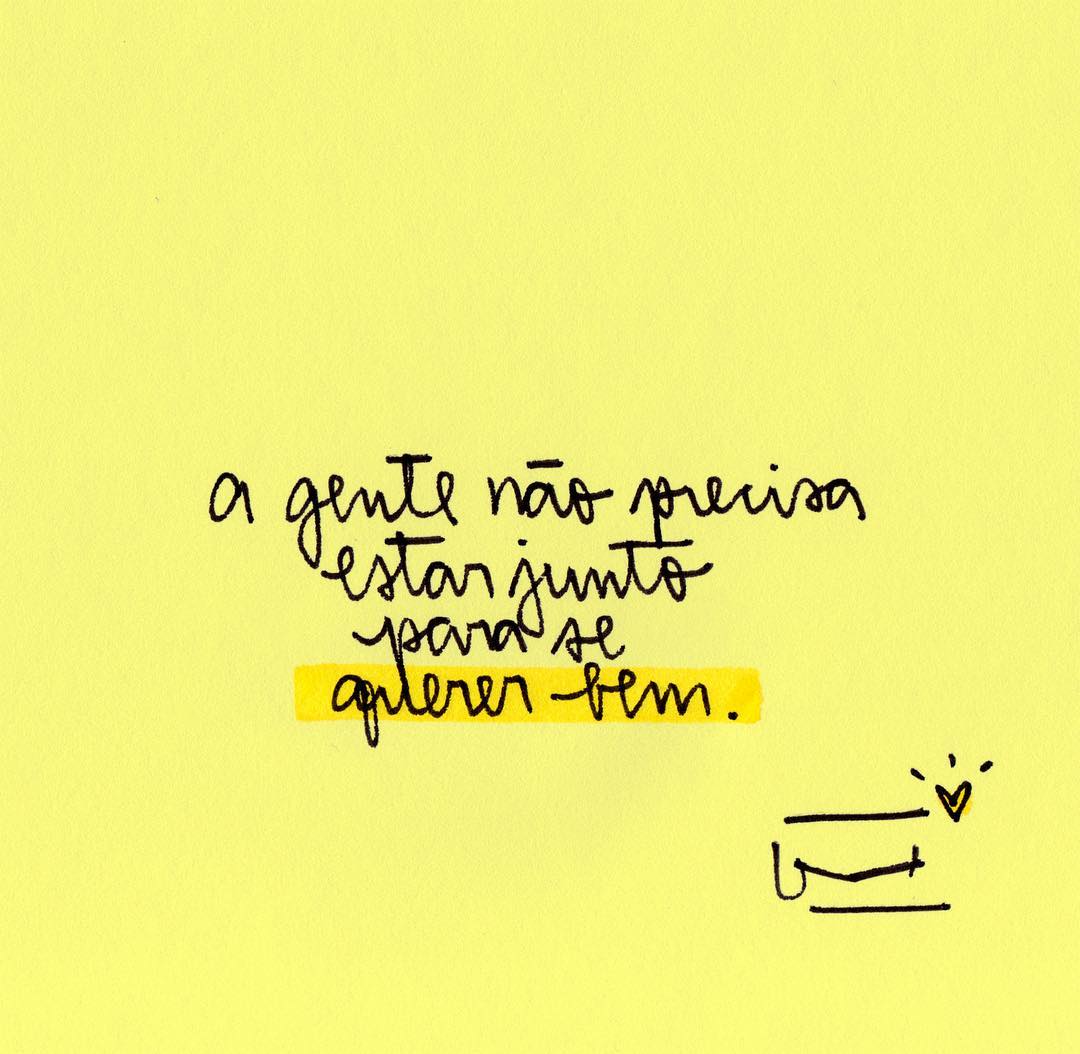 a gente não precisa
estar junto
para se
querer bem.